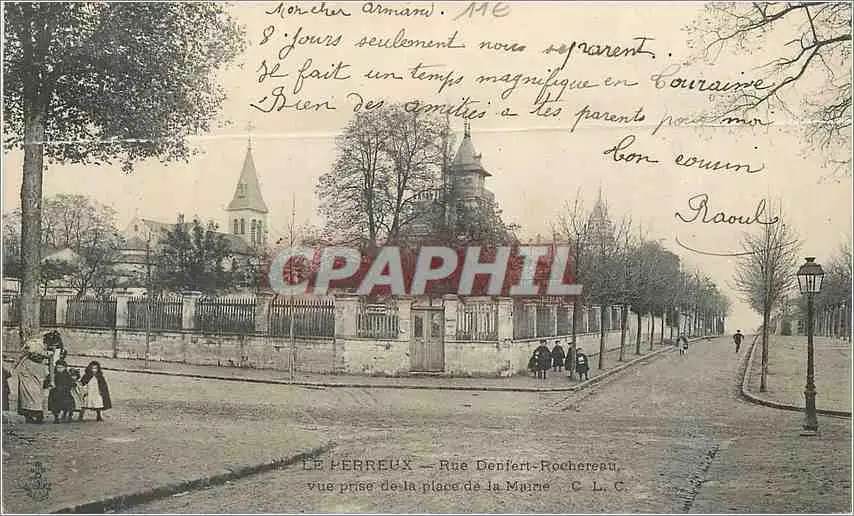 Mon cher Armand. 11€
8 jours seulement nous séparent.
Il fait un temps magnifique en Touraine
Bien des amitiés à tes parents pour moi
Ton cousin
Raoul
CPAPHIL
LE PERREUX — Rue Denfert-Rochereau,
vue prise de la place de la Mairie C. L. C.